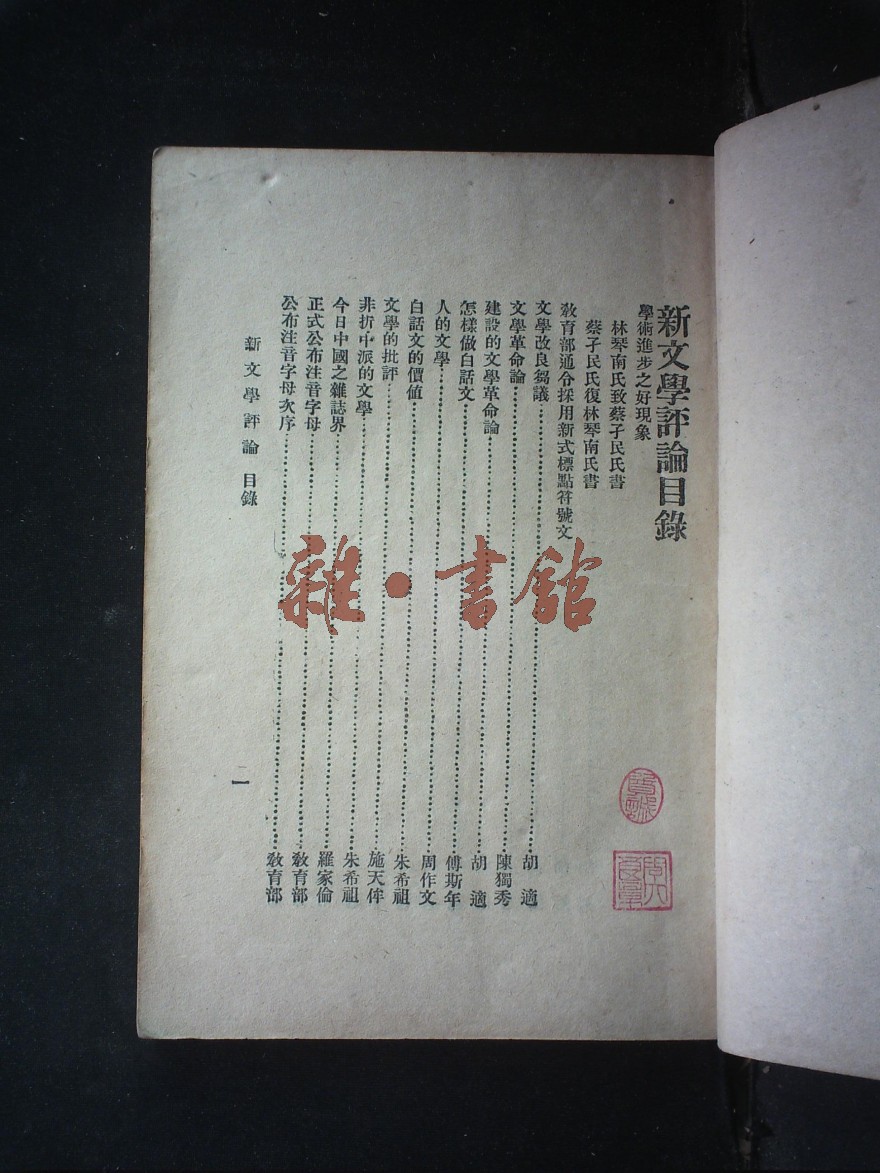 新文學評論目錄
學術進步之好現象
林琴南氏致蔡孑民氏書
蔡孑民氏復林琴南氏書
敎育部通令採用新式標點符號文
文學改良芻議 胡適
文學革命論 陳獨秀
建設的文學革命論 胡適
怎樣做白話文 傅斯年
人的文學 周作文
白話文的價值 朱希祖
文學的批評 施天侔
非折中派的文學 朱希祖
今日中國之雜誌界 羅家倫
正式公布注音字母 敎育部
公布注音字母次序 敎育部
新文學評論 目錄
一
雜·書館